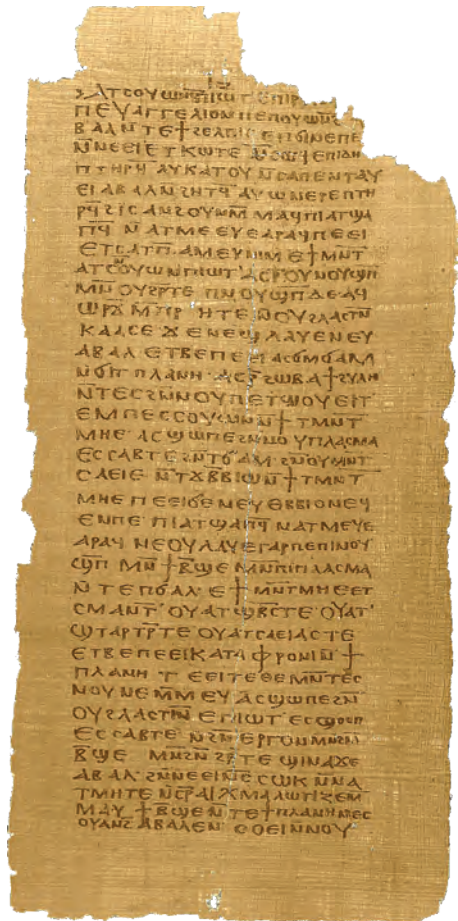 ⲓⲍ
ⲡⲉⲩⲁⲅⲅⲉⲗⲓⲟⲛ ⲡⲉ ⲡⲟⲩⲱⲛϩ̄
ⲁⲃⲁⲗ ⲛ̄ⲧⲉ ϯϩⲉⲗⲡⲓⲥ ⲉⲡϭⲓⲛⲉ ⲡⲉ
ⲛ̄ⲛⲉⲉⲓ ⲉⲧⲕⲱⲧⲉ ⲛ̄ⲥⲱϥ ⲉⲡⲓⲇⲏ
ⲡⲧⲏⲣϥ̄ ⲁⲩⲕⲁⲧⲟⲩ ⲛ̄ⲥⲁ ⲡⲉⲛⲧⲁⲩ
ⲉⲓ ⲁⲃⲁⲗ ⲛ̄ϩⲏⲧϥ̄ ⲁⲩⲱ ⲛⲉⲣⲉ ⲡⲧⲏ
ⲣϥ̄ ϩⲓ ⲥⲁⲛϩⲟⲩⲛ ⲙ̄ⲙⲁϥ ⲡⲓⲁⲧϣⲁ
ⲡϥ̄ ⲛ̄ⲁⲧⲙⲉⲉⲩⲉ ⲁⲣⲁϥ ⲡⲉⲉⲓ
ⲉⲧⲥⲁⲧⲡ̄ ⲁⲙⲉⲩ ⲛⲓⲙ ⲉϯⲙⲛ̄ⲧ
ⲁⲧⲥⲟⲩⲱⲛ ⲡⲓⲱⲧ ⲁⲥⲣ̄ ⲟⲩⲛⲟⲩϣⲡ̄
ⲙⲛ̄ ⲟⲩϩⲣ̄ⲧⲉ ⲡⲛⲟⲩϣⲡ̄ ⲇⲉ ⲁϥ
ⲱⲣϫ̄ ⲙ̄ⲡⲣⲏⲧⲉ ⲛ̄ⲟⲩϩⲗⲁⲥⲧⲛ̄
ⲕⲁⲁⲥⲉ ϫⲉ ⲛⲉϣ ⲗⲁⲩⲉ ⲛⲉⲩ
ⲁⲃⲁⲗ ⲉⲧⲃⲉ ⲡⲉⲉⲓ ⲁⲥϭⲙ̄ϭⲁⲙ
ⲛ̄ϭⲓ ϯⲡⲗⲁⲛⲏ ⲁⲥⲣ̄ ϩⲱⲃ ⲁϯϩⲩⲗⲏ
ⲛ̄ⲧⲉⲥ ϩⲛ̄ⲛ ⲟⲩⲡⲉⲧϣⲟⲩⲉⲓⲧ
ⲉⲙⲡⲉⲥⲥⲟⲩⲱⲛ ⲛ̄ϯⲙⲛ̄ⲧ
ⲙⲏⲉ ⲁⲥϣⲱⲡⲉ ϩⲛ̄ⲛⲟⲩⲡⲗⲁⲥⲙⲁ
ⲉⲥⲥⲁⲃⲧⲉ ϩⲛ̄ ⲧϭⲁⲙ ϩⲛ̄ ⲟⲩⲙⲛ̄ⲧ
ⲥⲁⲉⲓⲉ ⲛ̄ⲧϫⲃ̄ⲃⲓⲱ ⲛ̄ϯⲙⲛ̄ⲧ
ⲙⲏⲉ ⲡⲉⲉⲓ ϭⲉ ⲛⲉⲩⲑⲃ̄ⲃⲓⲟ ⲛⲉϥ
ⲉⲛ ⲡⲉ ⲡⲓⲁⲧϣⲁⲡϥ̄ ⲛ̄ⲁⲧⲙⲉⲩⲉ
ⲁⲣⲁϥ ⲛⲉⲟⲩⲗⲁⲩⲉ ⲅⲁⲣ ⲡⲉ ⲡⲓⲛⲟⲩ
ϣⲡ̄ ⲙⲛ̄ ϯⲃ̄ϣⲉ ⲙⲛ̄ ⲡⲓⲡⲗⲁⲥⲙⲁ
ⲛ̄ⲧⲉ ⲡϭⲁⲗ ⲉϯⲙⲛ̄ⲧⲙⲏⲉ ⲉⲧ
ⲥⲙⲁⲛⲧ ⲟⲩⲁⲧϣⲃ̄ⲧⲥ ⲧⲉ ⲟⲩⲁⲧ
ϣⲧⲁⲣⲧⲣ̄ ⲧⲉ ⲟⲩⲁⲧⲥⲁⲉⲓⲁⲥ ⲧⲉ
ⲉⲧⲃⲉ ⲡⲉⲉⲓ ⲕⲁⲧⲁⲫⲣⲟⲛⲓ ⲛ̄ϯ
ⲡⲗⲁⲛⲏ ⲧⲉⲉⲓ ⲧⲉ ⲑⲉ ⲙⲛ̄ⲧⲉⲥ
ⲛⲟⲩⲛⲉ ⲙ̄ⲙⲉⲩ ⲁⲥϣⲱⲡⲉ ϩⲛ̄ⲛ
ⲟⲩϩⲗⲁⲥⲧⲛ̄ ⲉⲡⲓⲱⲧ ⲉⲥϣⲟⲟⲡ
ⲉⲥⲥⲁⲃⲧⲉ ⲛ̄ϩⲛ̄ⲉⲣⲅⲟⲛ ⲙⲛ̄ ϩⲛ̄
ⲃ̄ϣⲉ ⲙⲛ̄ ϩⲛ̄ϩⲣ̄ⲧⲉ ϣⲓⲛⲁ ϫⲉ
ⲁⲃⲁⲗ ϩⲛ̄ ⲛⲉⲉⲓ ⲛ̄ⲥⲥⲱⲕ ⲛ̄ⲛⲁ
ⲧⲙⲏⲧⲉ ⲛ̄ⲥⲣ̄ⲁⲓⲭⲙⲁⲗⲱⲧⲓⲍⲉ ⲙ̄
ⲙⲁⲩ ϯⲃ̄ϣⲉ ⲛ̄ⲧⲉ ϯⲡⲗⲁⲛⲏ ⲛⲉⲥ
ⲟⲩⲁⲛϩ ⲁⲃⲁⲗ ⲉⲛ ⲥⲟⲉⲓ ⲛ̄ⲛⲟⲩ